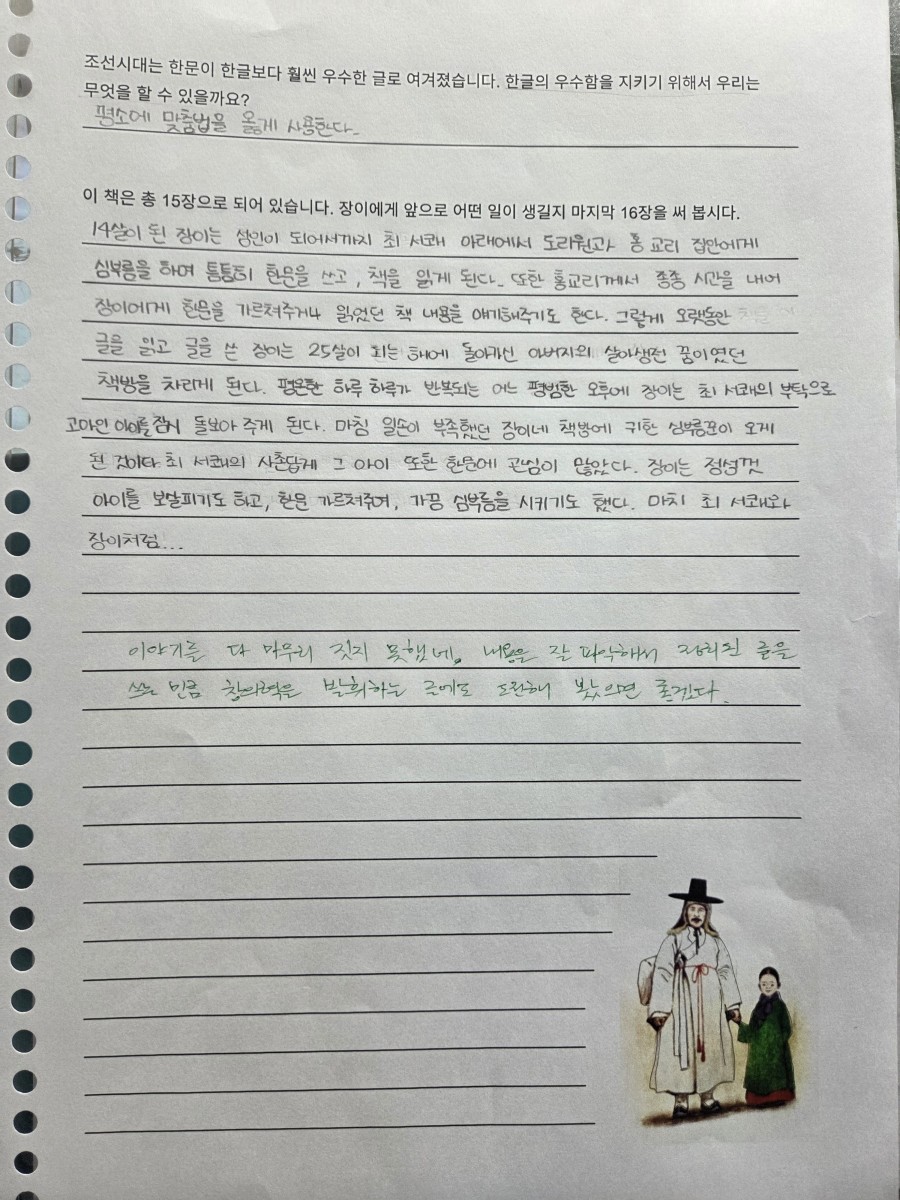 조선시대는 한문이 한글보다 훨씬 우수한 글로 여겨졌습니다. 한글의 우수함을 지키기 위해서 우리는
무엇을 할 수 있을까요?
평소에 맞춤법을 옳게 사용한다.
이 책은 총 15장으로 되어 있습니다. 장이에게 앞으로 어떤 일이 생길지 마지막 16장을 써 봅시다.
14살이 된 장이는 성인이 되어서까지 최 서쾌 아래에서 도리원과 홍 교리 집안에게
심부름을 하며 틈틈히 한문을 쓰고, 책을 읽게 된다. 또한 홍교리께서 종종 시간을 내어
장이에게 한문을 가르쳐주거나 읽었던 책 내용을 얘기해주기도 한다. 그렇게 오랫동안
글을 읽고 글을 쓴 장이는 25살이 되는 해에 돌아가신 아버지의 살아생전 꿈이였던
책방을 차리게 된다. 평온한 하루 하루가 반복되는 어느 평범한 오후에 장이는 최 서쾌의 부탁으로
고아인 아이를 잠시 돌보아 주게 된다. 마침 일손이 부족했던 장이네 책방에 귀한 심부름꾼이 오게
된 것이다 최 서쾌의 사촌답게 그 아이 또한 한문에 관심이 많았다. 장이는 정성껏
아이를 보살피기도 하고, 한문 가르쳐주며, 가끔 심부름을 시키기도 했다. 마치 최 서쾌와
장이처럼...
이야기를 다 마무리 짓지 못했네. 내용을 잘 파악해서 정리된 글을
쓰는 만큼 창의력을 발휘하는 글에도 도전해 봤으면 좋겠다.